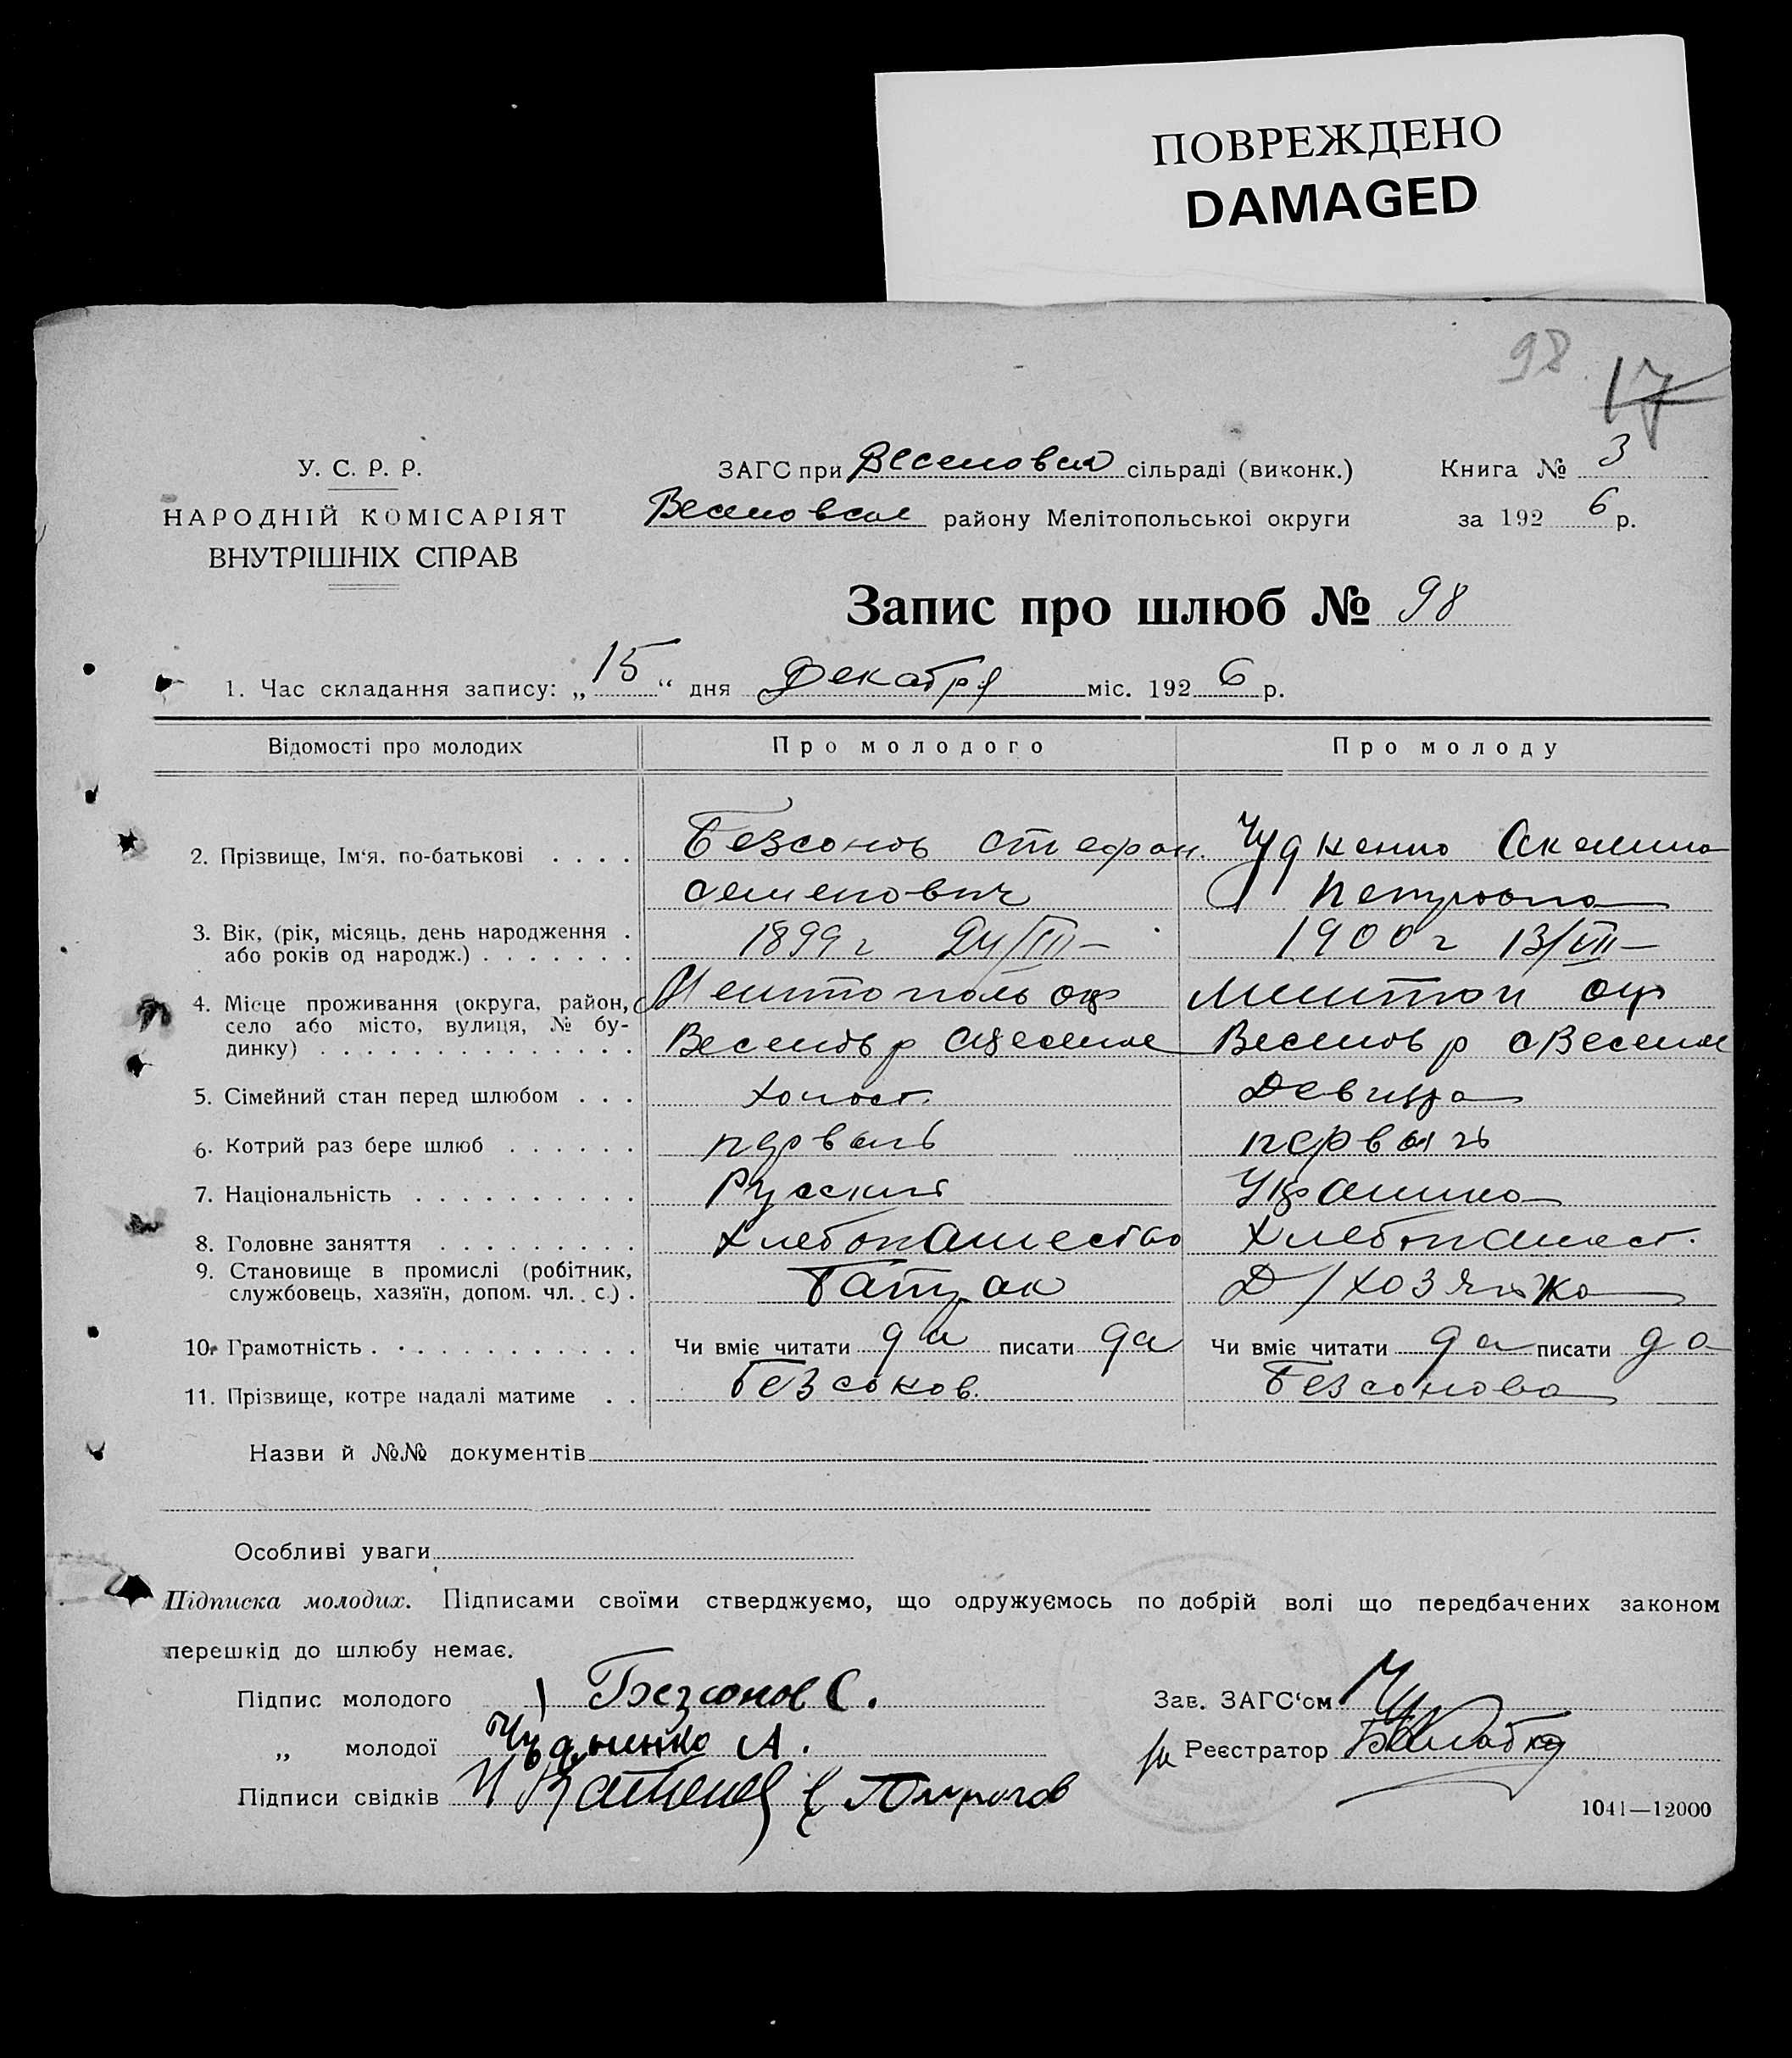 ПОВРЕЖДЕНО
DAMAGED
98. 17
У. С. Р. Р.
НАРОДНІЙ КОМІСАРІЯТ
ВНУТРІШНІХ СПРАВ
ЗАГС при сільраді (виконк.)
району Мелітопольської округи
Книга № 3
за 192 6 р.
Запис про шлюб № 98
1. Час складання запису: „ 15 “ дня Декабря міс. 192 6 р.
Відомості про молодих Про молодого Про молоду
2. Прізвище, Ім'я, по-батькові . . . . Безсонов Стефан Акелина
Семенович Петровна
3. Вік, (рік, місяць, день народження . 1899 г 1900 г 13/VII–
або років од народж.) . . . . . . .
4. Місце проживання (округа, район, Мелитополь окр Мелитоп окр
село або місто, вулиця, № бу- Веселов р Веселов р с Веселое
динку) . . . . . . . . . . . . .
5. Сімейний стан перед шлюбом . . . холост. Девица
6. Котрий раз бере шлюб . . . . . . первый
7. Національність . . . . . . . . . . Русский
8. Головне заняття . . . . . . . . . Хлебопашество Хлебопашест.
9. Становище в промислі (робітник, Батрак Д/хозяйка
службовець, хазяїн, допом. чл. с.) .
10. Грамотність . . . . . . . . . . . . Чи вміє читати да писати да Чи вміє читати да писати да
11. Прізвище, котре надалі матиме . . Безсонов. Безсонова
Назви й №№ документів
Особливі уваги
Підписка молодих. Підписами своїми стверджуємо, що одружуємось по добрій волі що передбачених законом
перешкід до шлюбу немає.
Підпис молодого Безсонов С.
„ молодої А.
Підписи свідків
Зав. ЗАГС'ом
Реєстратор
1041—12000